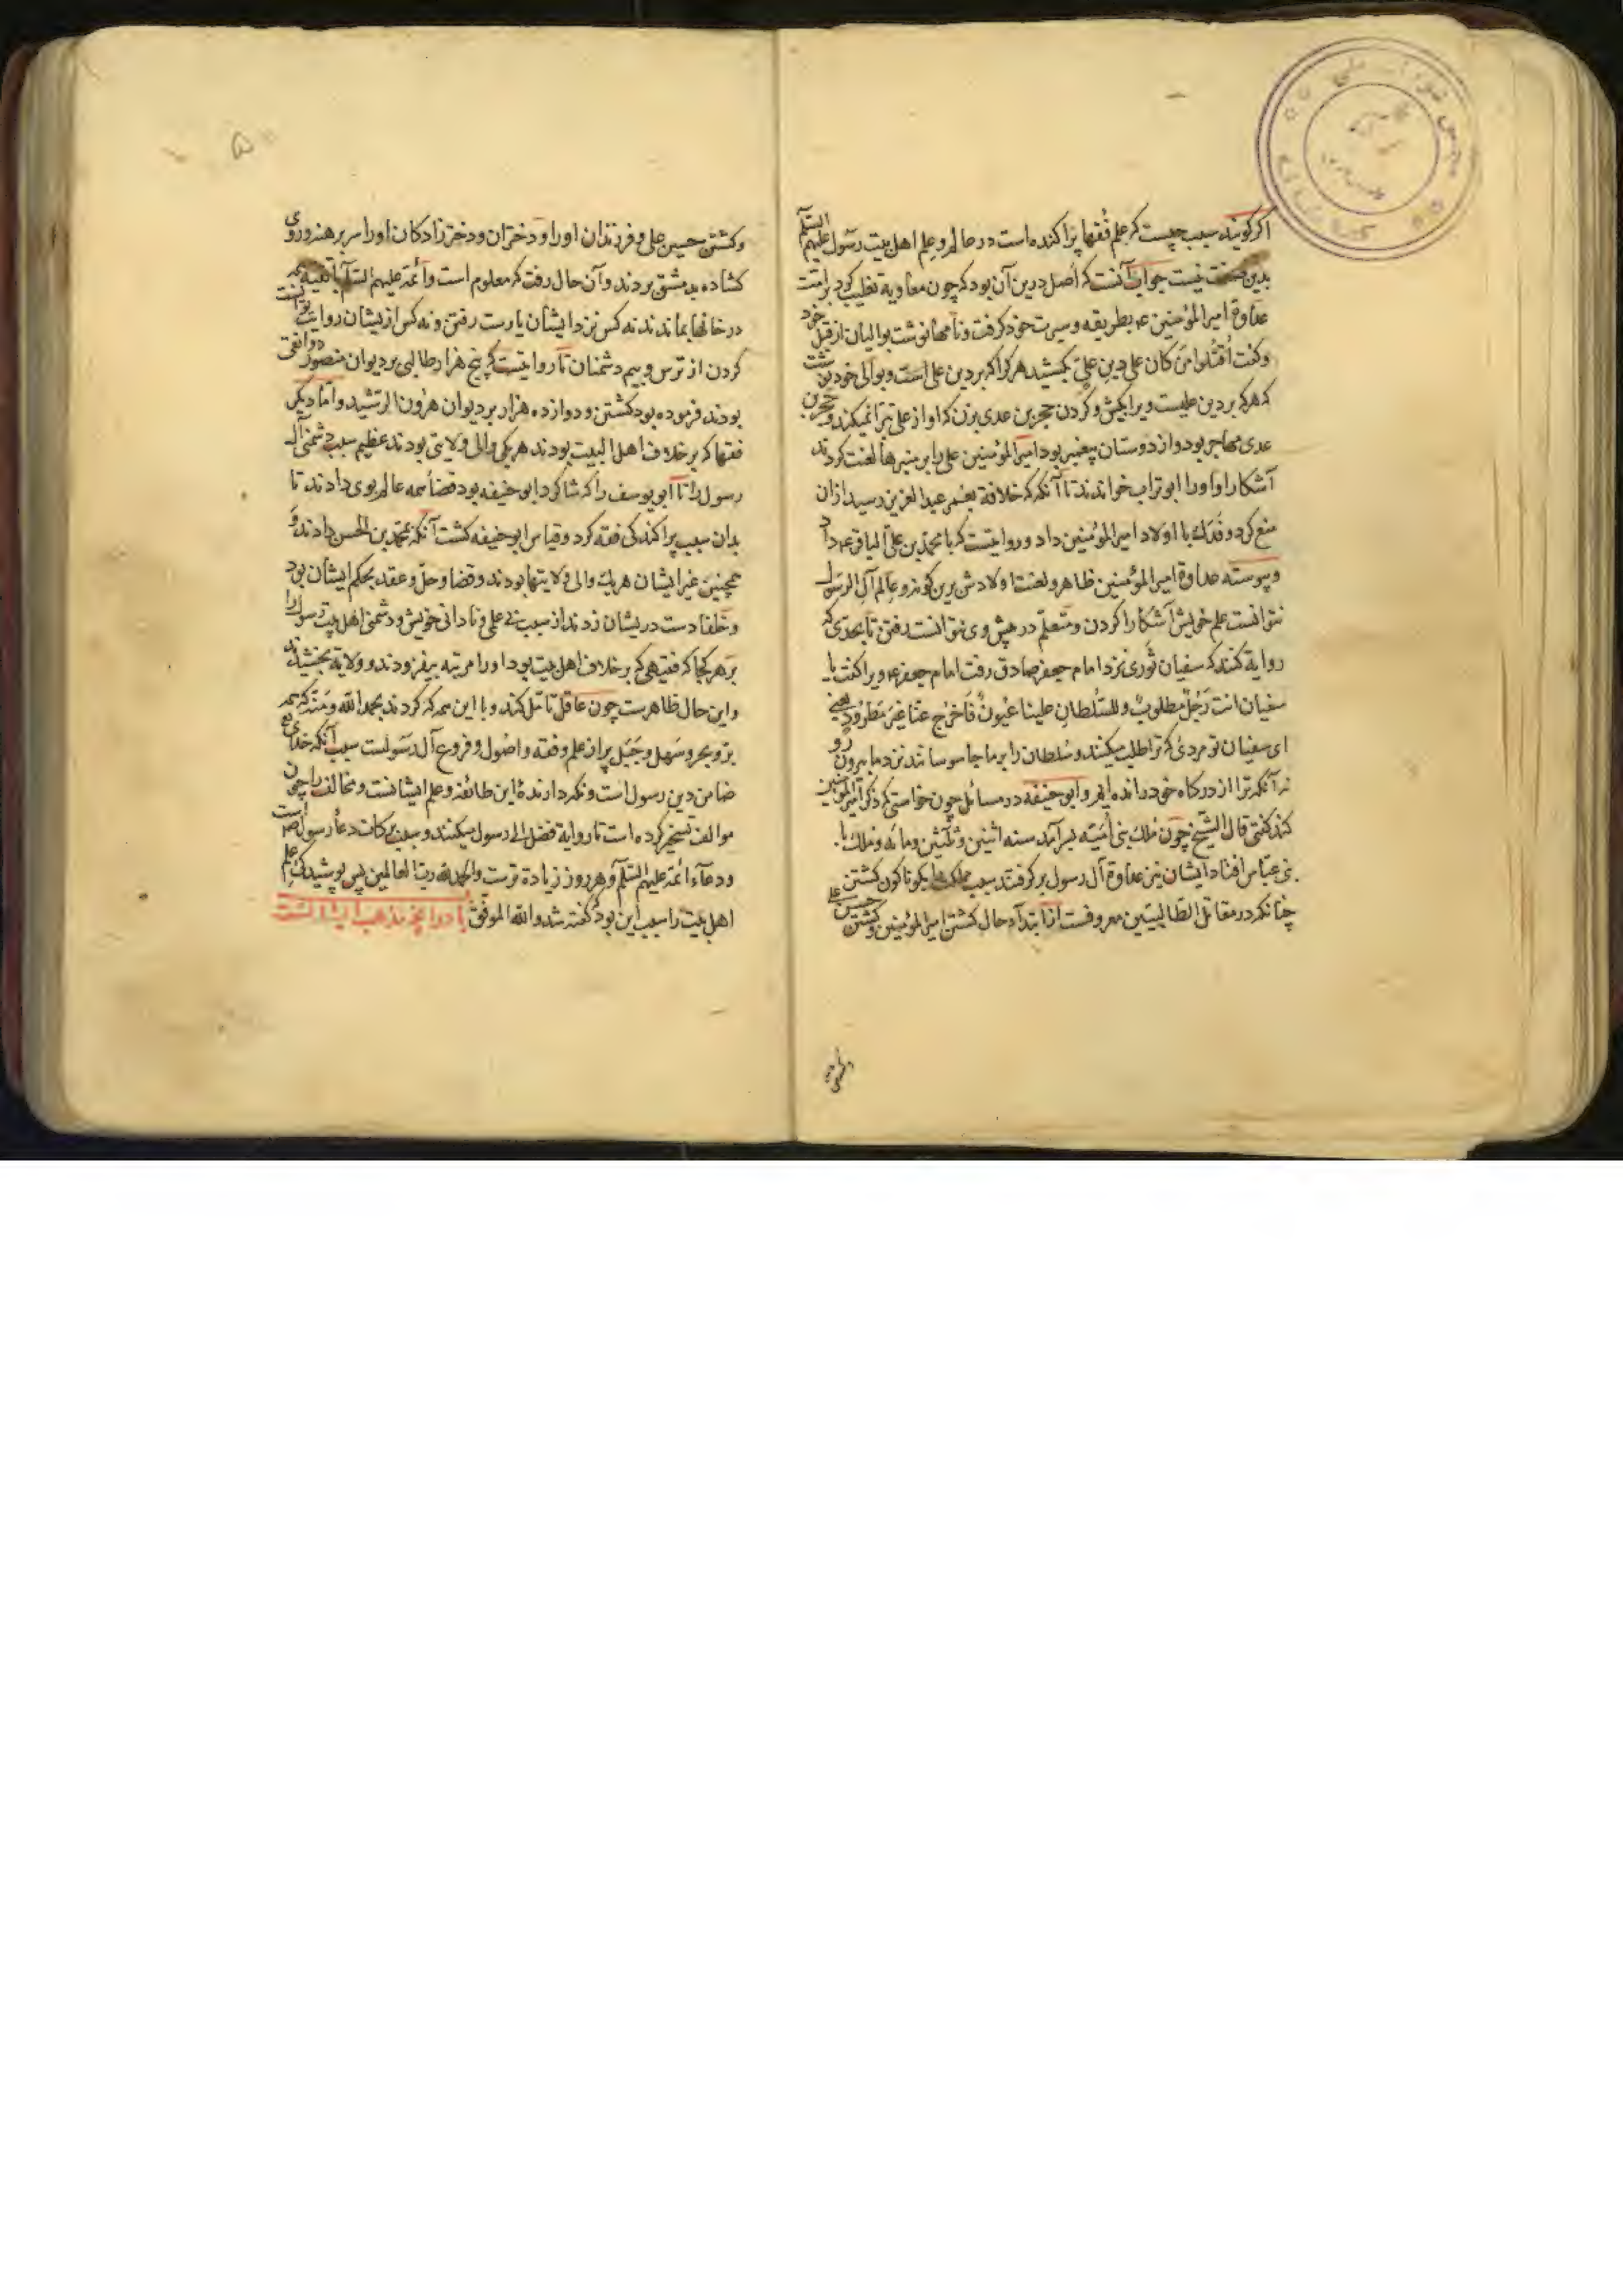 اگر گویند سبب چیست که علم فقها پراکنده است در عالم و علم اهل بیت رسول علیهم السلم
بدین صفت نیست جواب آنست که اصل درین آن بود که چون معاویه تغلب کرد بر امت
عداوة امیر المؤمنین ع بطریقه و سیرت خود گرفت و نامها نوشت بوالیان از قبل خود
و گفت اُقتُلوا مَن کان علی دینِ علیّ بکشید هر کرا که بر دین علی است و بوالی خود نوشت
که هر که بر دین علیست ویرا بکش و گردن حجر بن عدی بزن که او از علی تبرا نمیکند و حجر بن
عدی مهاجر بود و از دوستان پیغمبر بود امیر المؤمنین علی را بر منبرها لعنت کردند
آشکارا و او را ابوتراب خواندند تا آنگه که خلافة بعمر عبد العزیز رسید از آن
منع کرد و فدک با اولاد امیر المؤمنین داد و روایتست که با محمد بن علی الباقر ع داد
و پیوسته عداوة امیر المؤمنین ظاهر و لعنت اولادش برین گونه و عالم آل الرسول
نتوانست علم خویش آشکارا کردن و متعلّم در پیش وی نتوانست رفتن تا بحدی که
روایة کنند که سفیان ثوری نزد امام جعفر صادق رفت امام جعفر ع ویرا گفت یا
سفیان انت رَجُلٌ مطلوبٌ و للسُّلطانِ علینا عُیونٌ فَاخرُج عنّا غیرَ مَطرُودٍ یعنی
ای سفیان تو مردی که ترا طلب میکنند و سُلطان را بر ما جاسوسانند نزد ما بیرون رو
نه آنکه ترا از درگاه خود رانده ایم و ابو حنیفه در مسائل چون خواستی که ذکر امیر المؤمنین
کند گفتی قال الشیخ چون مُلک بنی اُمَیّه بسر آمد سنه اثنین و ثلثین و مائه و ملک با
بنی عبّاس افتاد ایشان نیز عداوة آل رسول بر گرفتند بسبب مملکت بگوناگون کشتن
چنانکه در مقاتل الطّالبیّین معروفست از ابتدآء حال کشتن امیر المؤمنین و کشتن حسن علی
و کشتن حسین علی و فرزندان او را و دختران و دختر زادگان او را سر برهنه و روی
گشاده بدمشق بردند و آن حال رفت که معلوم است و ائمّه علیهم السّلم با تقیه
در خانها بماندند نه کس نزد ایشان یارست رفتن و نه کس از ایشان روایت توانست
کردن از ترس و بیم دشمنان تا روایتست که پنج هزار طالبی بر دیوان منصور دوانقی
بودند فرموده بود کشتن و دوازده هزار بر دیوان هرون الرّشید و امّا دیگر
فقها که بر خلاف اهل البیت بودند هر یکی والی ولایتی بودند عظیم سبب دشمنی آل
رسول را تا ابو یوسف را که شاگرد ابو حنیفه بود قضاء همه عالم بوی دادند تا
بدان سبب پراکندگی فقه کرد و قیاس ابو حنیفه گشت آنگه بمحمّد بن الحسن دادند و
همچنین غیر ایشان هر یک والی ولایتها بودند و قضا و حلّ و عقد بحکم ایشان بود
و خلفا دست در یشان زدند از سبب بی علمی و نادانی خویش و دشمنی اهل بیت رسول را
بر هر کجا که فقیهی که بر خلاف اهل بیت بود او را مرتبه بیفزودند و ولایة بخشیدند
و این حال ظاهرست چون عاقل تأمّل کند و با این همه که کردند بحمد الله و منّه که همه
بر و بحر و سَهل و جَبَل پر از علم و فقه و اصُول و فروع آل رسولست سبب آنکه خدای تع
ضامن دین رسول است و نگه دارندهٔ این طائفه و علم ایشانست و مخالف را چون
موالف تسخیر کرده است تا روایة فضل ال رسول میکنند و سبب برکات دعاء رسول است صم
و دعآء ائمّه علیهم السّلم و هر روز زیادة ترست و الحمد لله رب العالمین پس پوشیدگی علم
اهل بیت را سبب این بود که گفته شد و الله الموفق یاد و انچه مذهب ایشانست